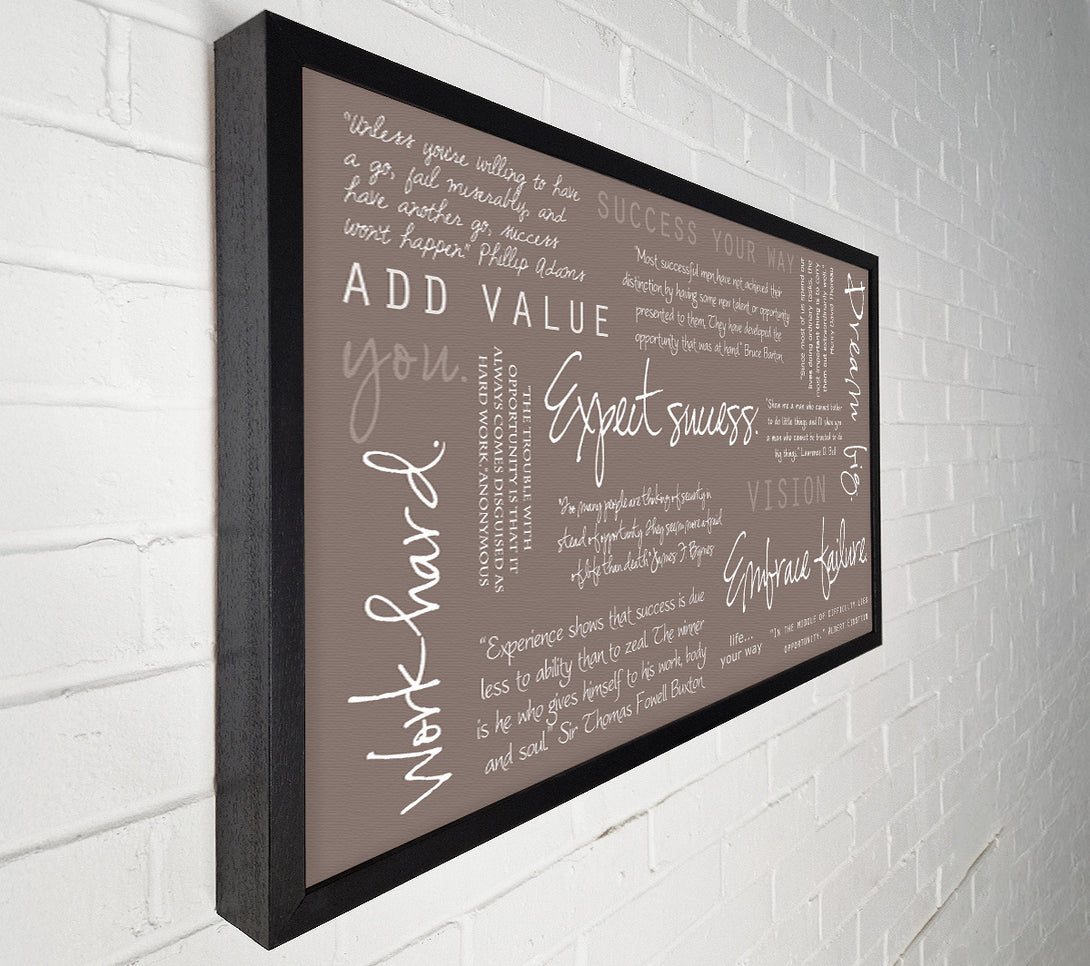 "Unless you're willing to have
a go, fail miserably, and
have another go, success
won't happen." Phillip Adams
SUCCESS YOUR WAY
"Most successful men have not achieved their
distinction by having some new talent or opportunity
presented to them. They have developed the
opportunity that was at hand." Bruce Barton
"Since most of us spend our
lives doing ordinary tasks, the
most important thing is to carry
them out extraordinarily well."
Henry David Thoreau
Dream big.
ADD VALUE
you.
"THE TROUBLE WITH
OPPORTUNITY IS THAT IT
ALWAYS COMES DISGUISED AS
HARD WORK." ANONYMOUS
Expect success.
"Show me a man who cannot bother
to do little things and I'll show you
a man who cannot be trusted to do
big things." Lawrence D. Bell
VISION
work hard.
"Too many people are thinking of security in
stead of opportunity. They seem more afraid
of life than death." James F. Byrnes
Embrace failure.
"Experience shows that success is due
less to ability than to zeal. The winner
is he who gives himself to his work, body
and soul." Sir Thomas Fowell Buxton
life...
your way
"IN THE MIDDLE OF DIFFICULTY LIES
OPPORTUNITY." ALBERT EINSTEIN